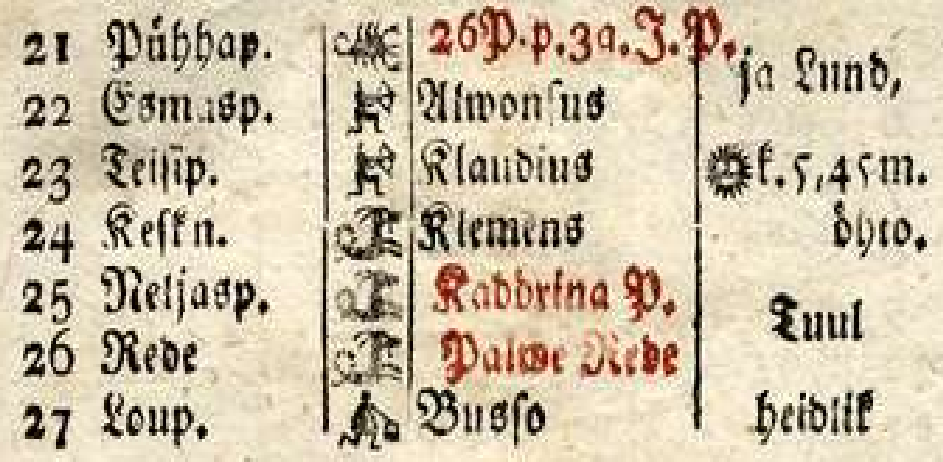 21 Pühhap. 26 P. p. 3 a. J. P. ja Lund,
22 Esmasp. Alwonsus
23 Teisip. Klaudius k. 5, 45 m.
24 Keskn. Klemens öhto.
25 Neljasp. Kaddrina P. Tuul
26 Rede Palwe Rede
27 Loup. Busso heidlik